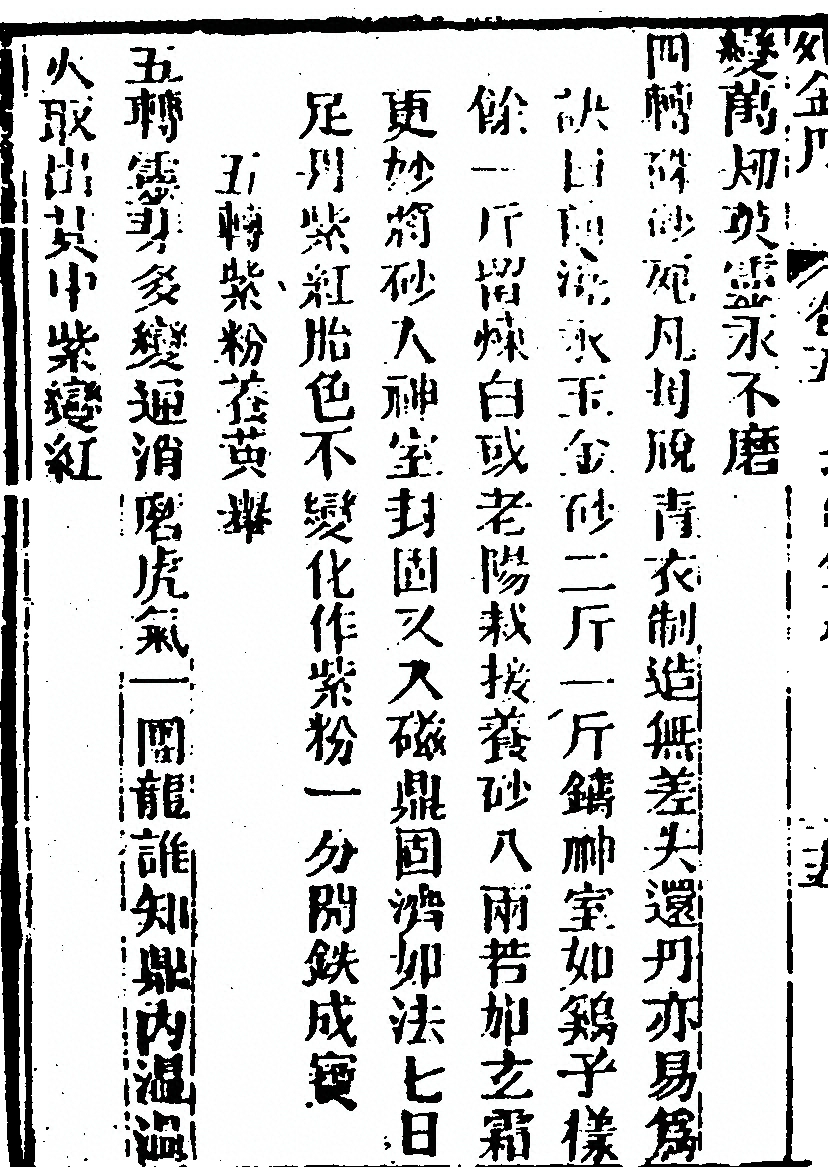 變萬刼英靈永不磨
四轉硃砂死凡母脫青衣制造無差失還丹亦易爲
訣曰澆永玉金砂二斤一斤鑄神室如鷄子樣
餘一斤留煉白或老陽栽接養砂八兩若如玄霜
更妙將砂入神室封固又入磁鼎固濟如法七日
足丹紫紅胎色不變化作紫粉一分開鉄成寳
五轉紫粉黃轝
五轉靈芽多變通消磨虎氣一團龍誰知鼎內溫溫
火取出其中紫變紅